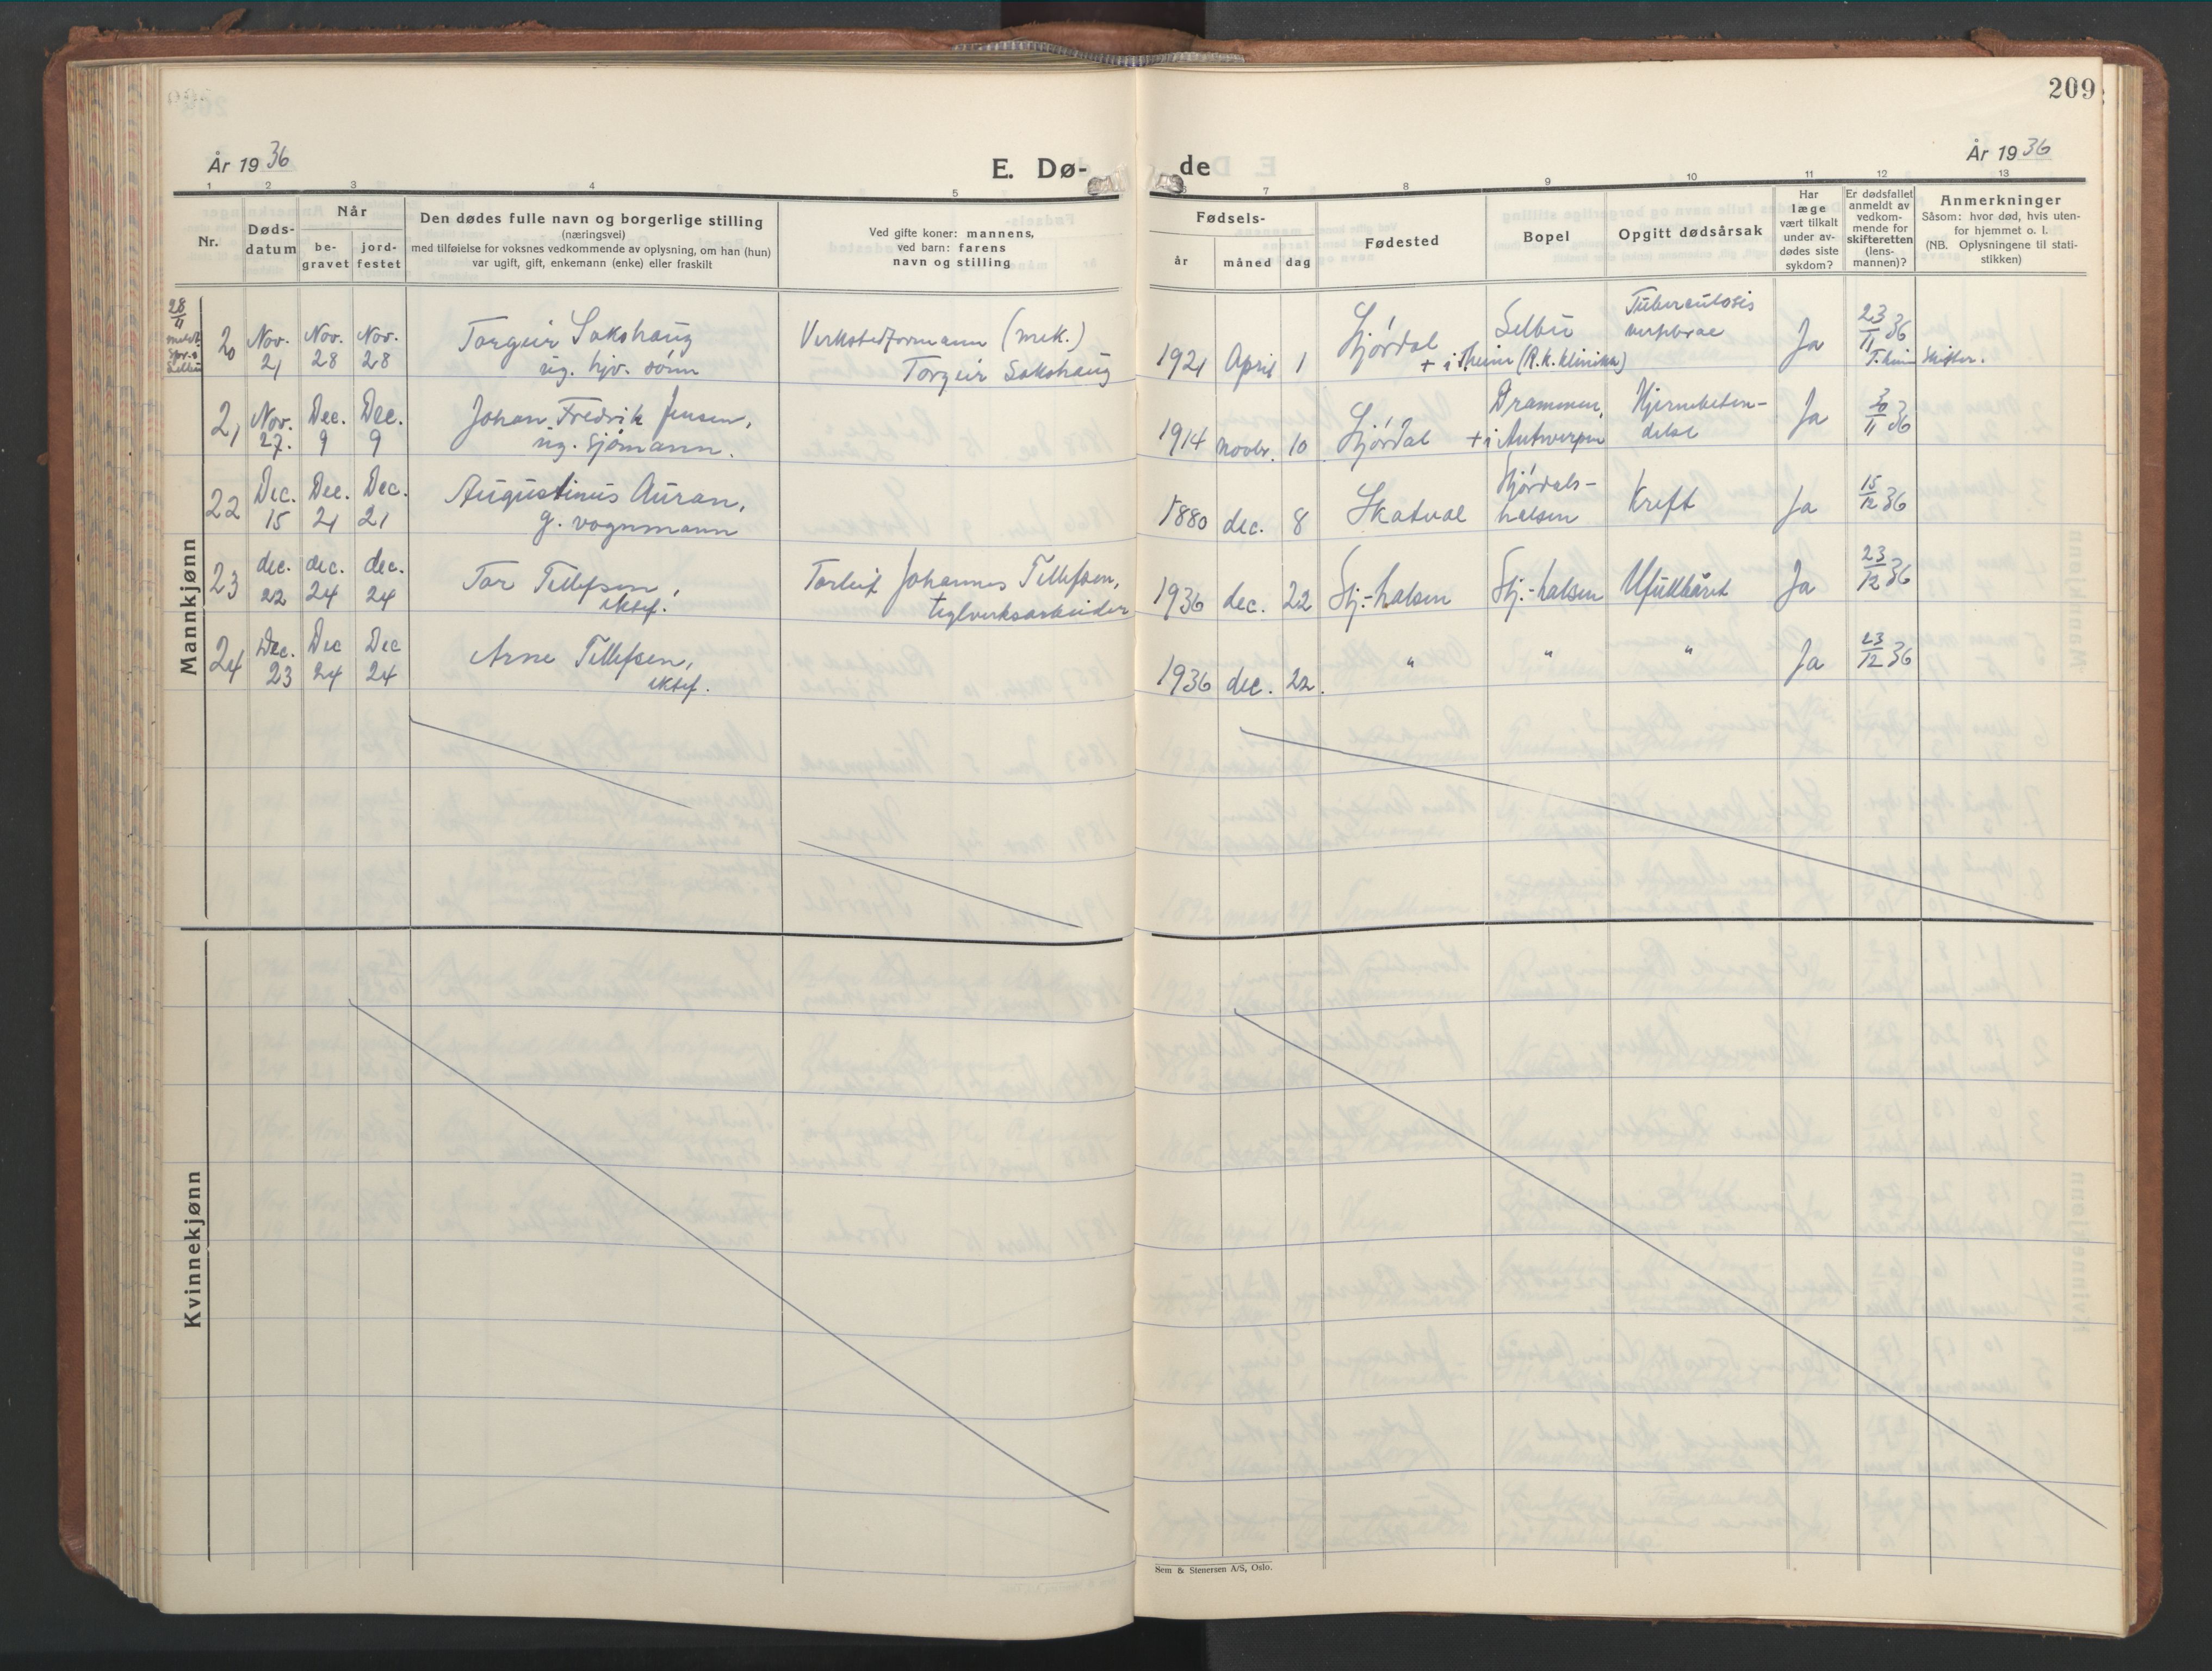 209
År 1936
E. Dø-
de
År 1936
1 2 3 4 5
6 7 8 9 10 11 12 13
Nr.
Døds-
datum
Når
be-
gravet
jord-
festet
Den dødes fulle navn og borgerlige stilling
(næringsvei)
med tilføielse for voksnes vedkommende av oplysning, om han (hun)
var ugift, gift, enkemann (enke) eller fraskilt
Ved gifte koner: mannens,
ved barn: farens
navn og stilling
Fødsels-
år
måned
dag
Fødested
Bopel
Opgitt dødsårsak
Har
læge
vært tilkalt
under av-
dødes siste
sykdom?
Er dødsfallet
anmeldt av
vedkom-
mende for
skifteretten
(lens-
mannen)?
Anmerkninger
Såsom: hvor død, hvis uten-
for hjemmet o. l.
(NB. Oplysningene til stati-
stikken)
Mannkjønn
28/11
meldt
Spr. i
Selbu
20 Nov. 21 Nov. 28 Nov. 28
Torgeir Sakshaug
ug. hjv. sønn
Verkstedformann (mek.)
Torgeir Sakshaug
1921 April 1 Stjørdal
Selbu
+ i Theim (R.k. klinikk)
Tuberculosis
vertebrae
Ja 23/11 36
T.heim skifter.
21 Nov. 27. Dec. 9 Dec. 9
Johan Fredrik Jensen,
ug. sjømann.
1914 novbr. 10 Stjørdal
Drammen,
+ i Antwerpen
Hjernebeten-
delse
Ja 30/11 36
22 Dec. 15 Dec. 21 Dec. 21
Augustinus Auran,
g. vognmann
1880 dec. 8 Skatval
Stjørdals-
halsen
Kreft Ja 15/12 36
23 dec. 22 dec. 24 dec. 24
Tor Tellefsen,
ektef.
Torleif Johannes Tellefsen,
teglverksarbeider
1936 dec. 22 Stj.-halsen Stj.-halsen Ufullbåret Ja 23/12 36
24 Dec. 23 Dec 24 Dec 24
Arne Tellefsen,
ektef.
1936 dec. 22. " " " Ja 23/12 36
Kvinnekjønn
Sem & Stenersen A/S, Oslo.